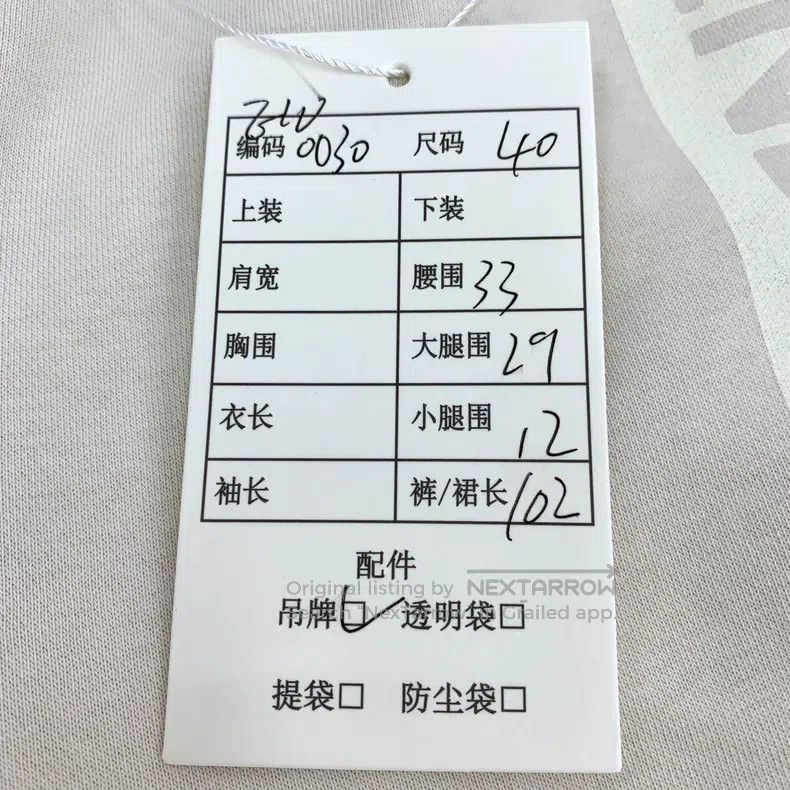 编码 0030 尺码 40
上装 下装
肩宽 腰围 33
胸围 大腿围 29
衣长 小腿围 12
袖长 裤/裙长 102
配件
Original listing by NEXTARROW
吊牌☑ 透明袋□
on Grailed app.
提袋□ 防尘袋□